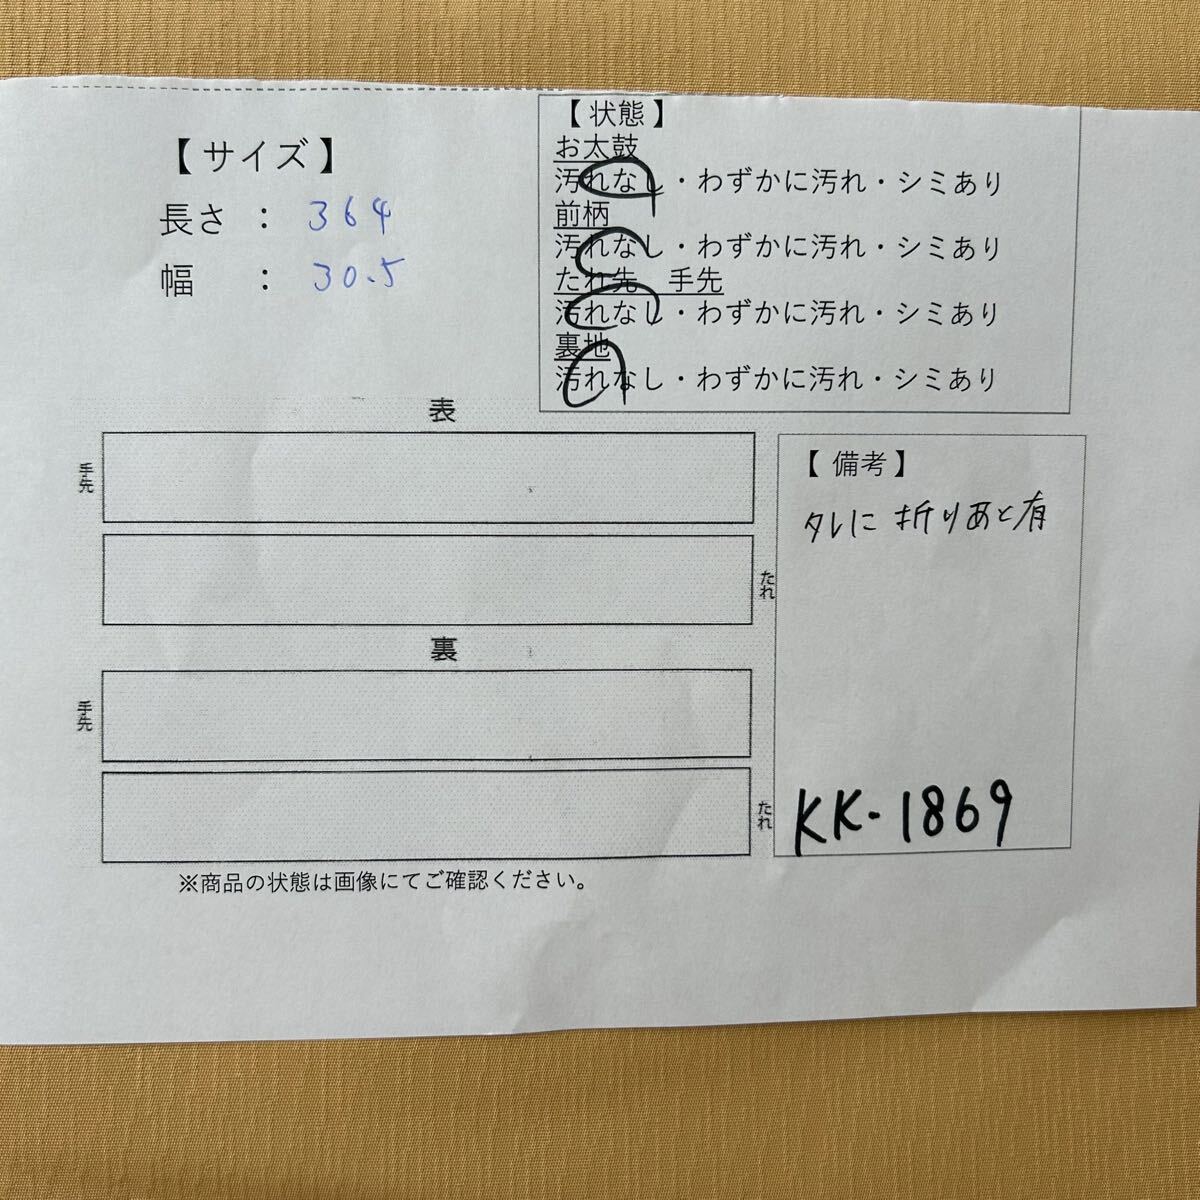 【 サイズ 】
長さ ： 364
幅 ： 30.5
【 状態 】
お太鼓
汚れなし・わずかに汚れ・シミあり
前柄
汚れなし・わずかに汚れ・シミあり
たれ先 手先
汚れなし・わずかに汚れ・シミあり
裏地
汚れなし・わずかに汚れ・シミあり
表
手先
たれ
裏
手先
たれ
※商品の状態は画像にてご確認ください。
【 備考 】
タレに 折りあと有
KK-1869